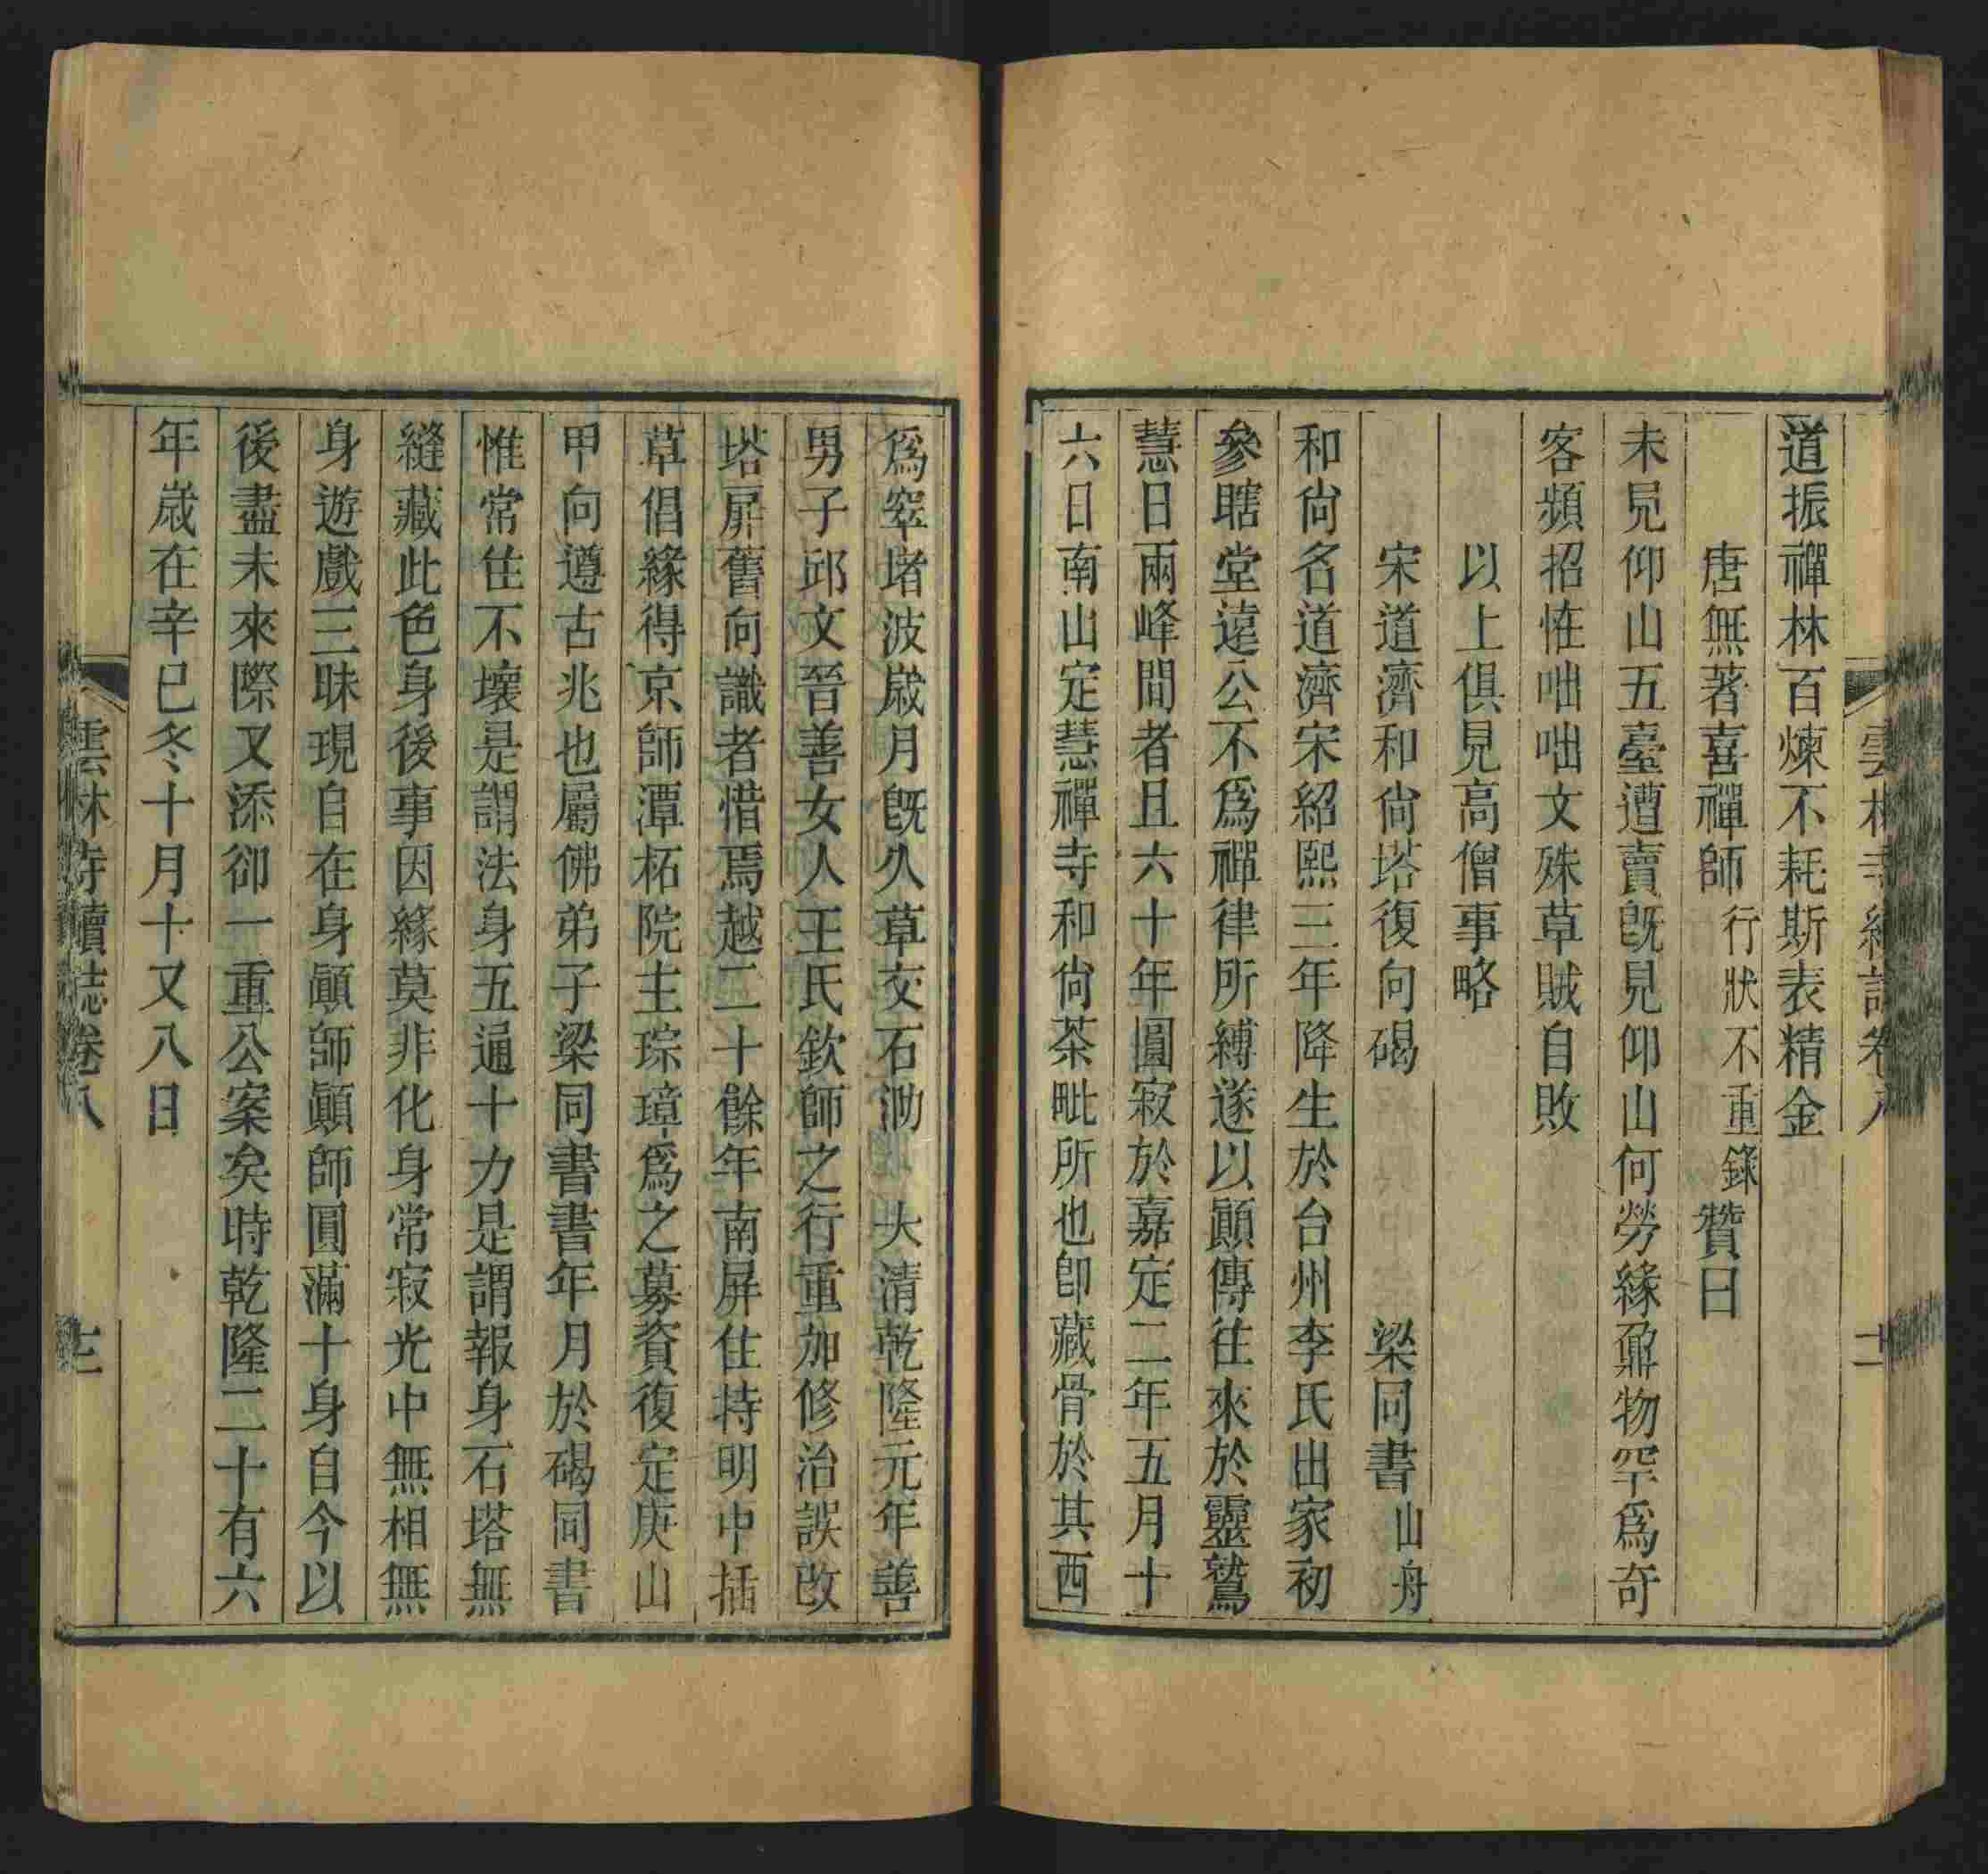 道振禪林百煉不耗斯表精金
唐無著喜禪師行狀不重錄贊曰
未見仰山五臺遭賣旣見仰山何勞緣鼐物罕爲奇
客頻招恠咄咄文殊草賊自敗
以上俱見高僧事略
宋道濟和尙塔復向碣 梁同書山舟
和尙名道濟宋紹熙三年降生於台州李氏出家初
參瞎堂遠公不爲禪律所縛遂以顚傳往來於靈鷲
慧日兩峰間者且六十年圓寂於嘉定二年五月十
六日南山定慧禪寺和尙茶毗所也卽藏骨於其西
爲窣堵波歲月旣久草交石泐 大清乾隆元年善
男子邱文晉善女人王氏欽師之行重加修治誤改
塔屝舊向識者惜焉越二十餘年南屏住持明中插
草倡緣得京師潭柘院主琮璋爲之募資復定庚山
甲向遵古兆也屬佛弟子梁同書書年月於碣同書
惟常住不壞是謂法身五通十力是謂報身石塔無
縫藏此色身後事因緣莫非化身常寂光中無相無
身遊戲三昧現自在身顚師顚師圓滿十身自今以
後盡未來際又添卻一重公案矣時乾隆二十有六
年歲在辛巳冬十月十又八日
雲林寺續誌卷八 十二